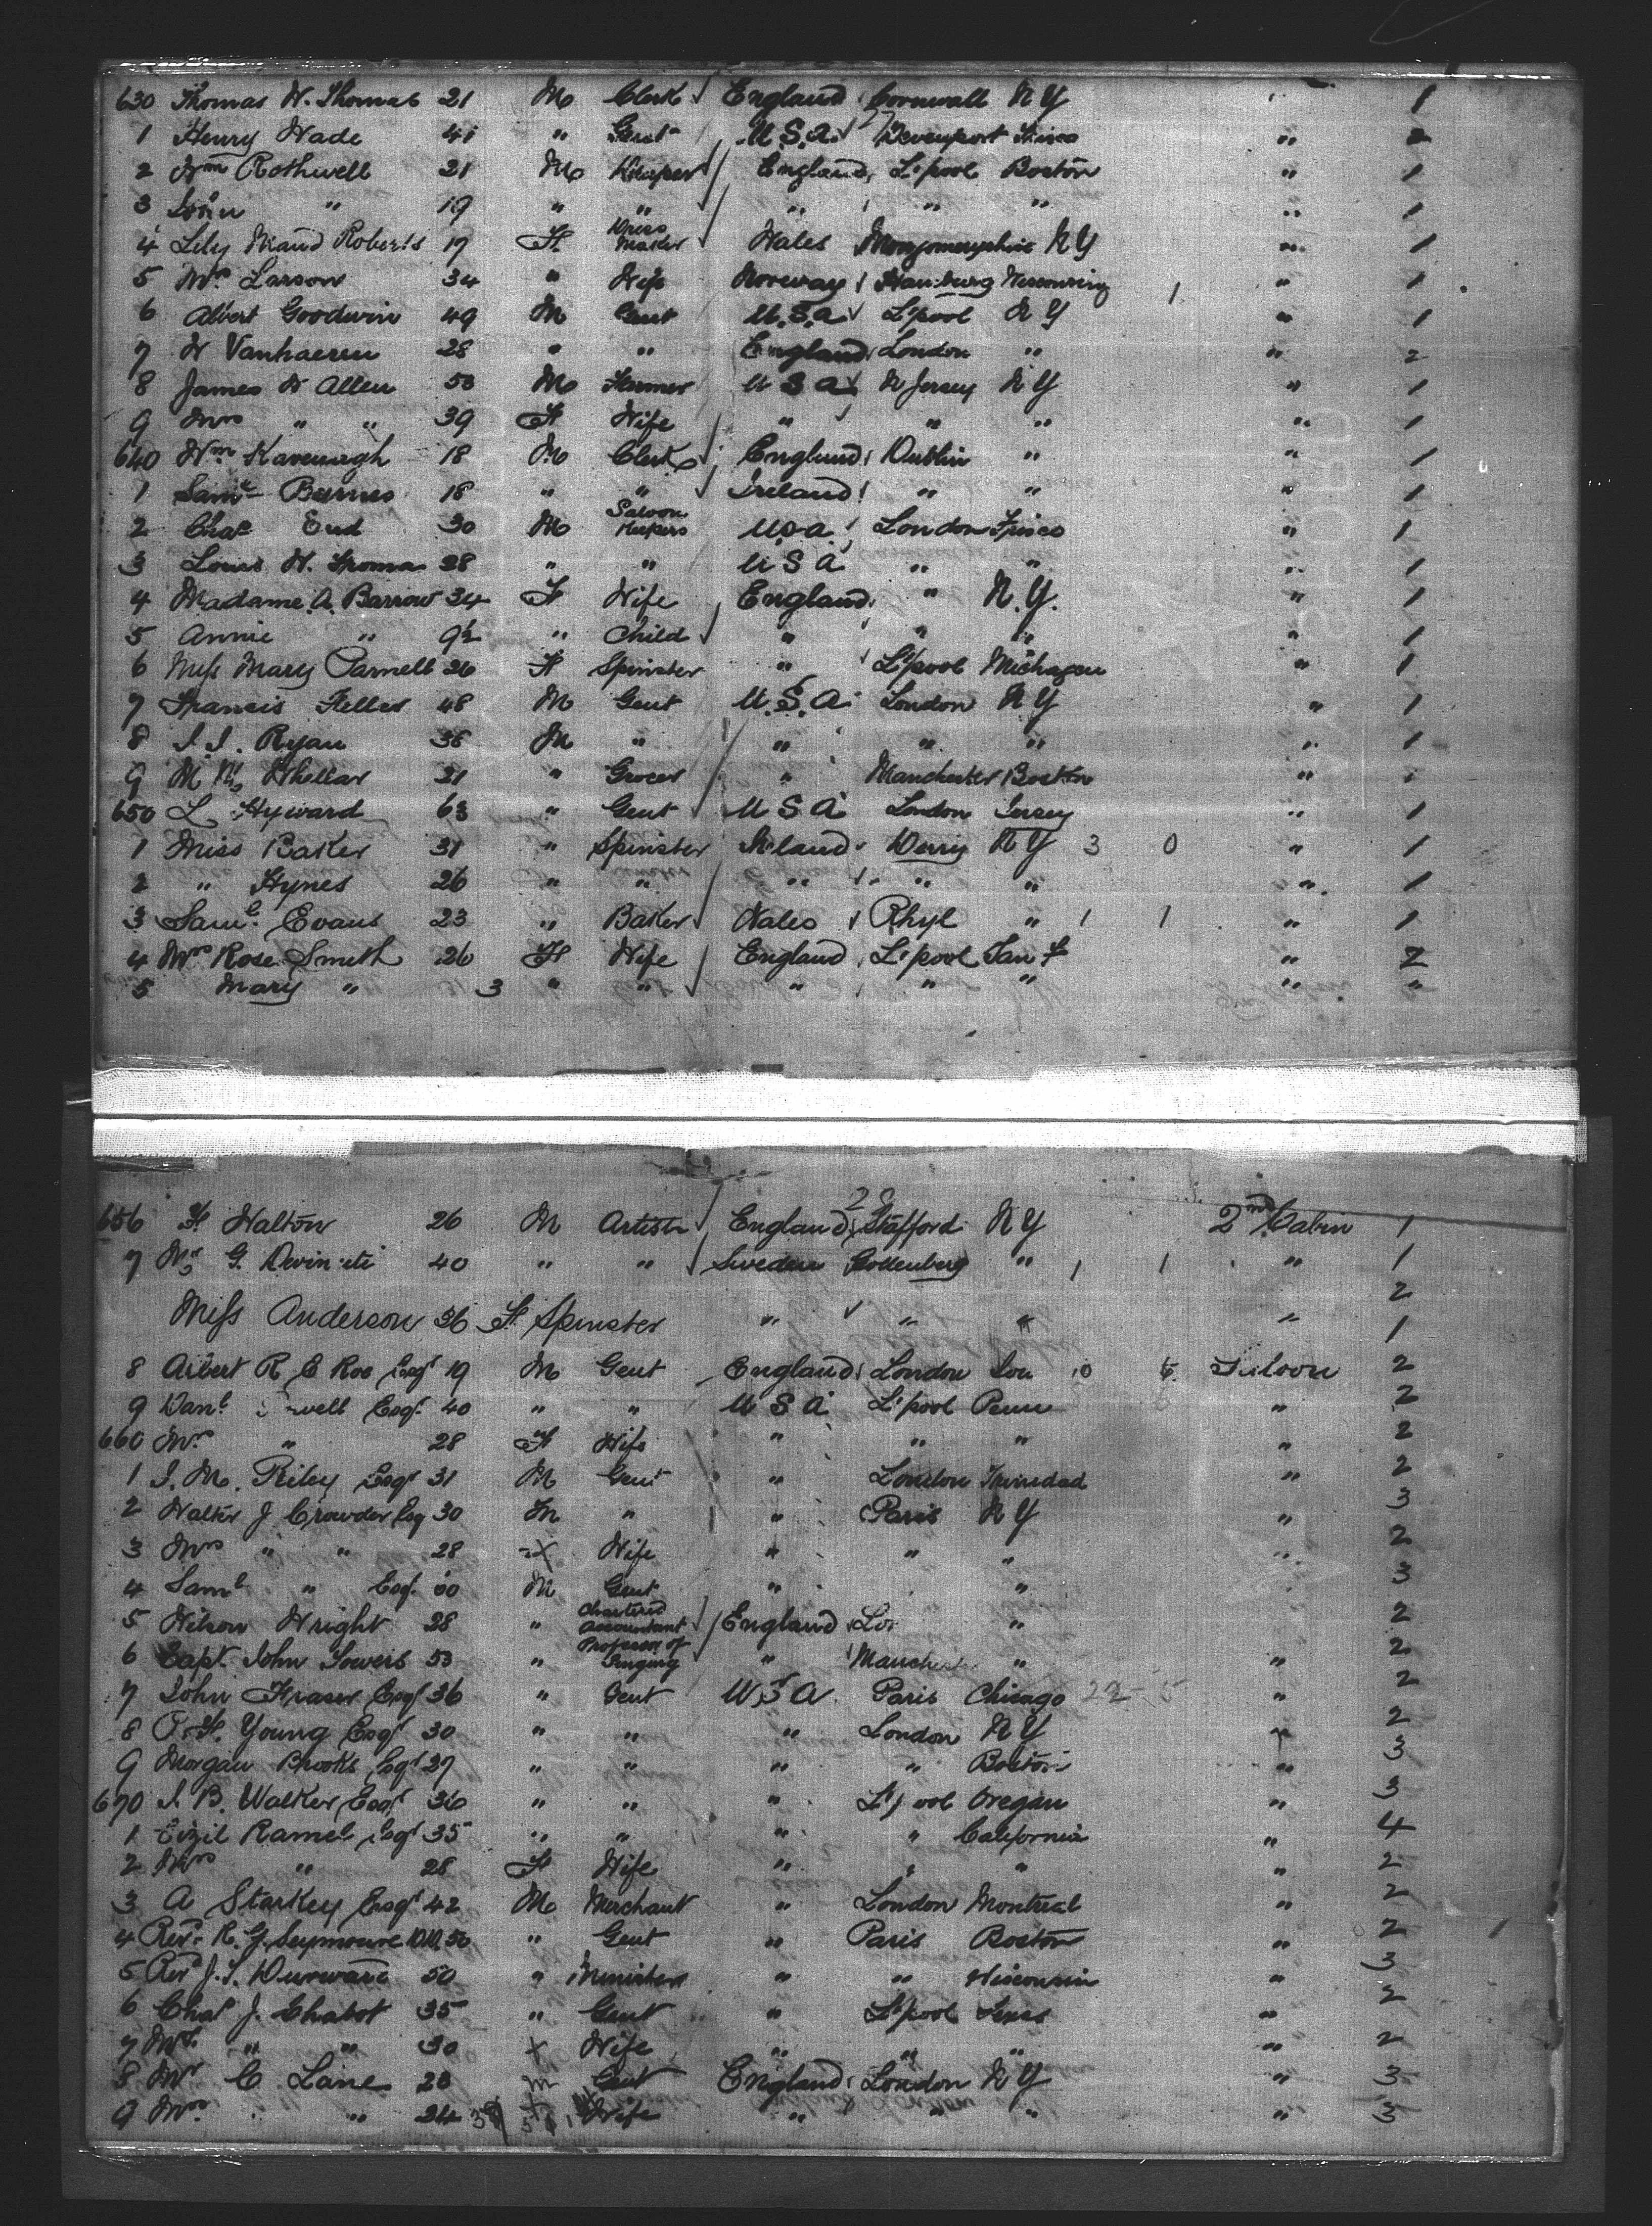 630 Thomas W. Thomas 21 M Clerk England Cornwall N Y 1
1 Henry Wade 41 " Gent U.S.A. Devenport Frisco " 2
2 Wm Rothwell 21 M Draper England L'pool Boston " 1
3 John " 19 " " " " " " 1
4 Lily Maud Roberts 17 F Dress Maker Wales Montgomeryshire N Y " 1
5 Mrs Larson 34 " Wife Norway Hamburg 1 " 1
6 Albert Goodwin 49 M Gent U.S.A L'pool N Y " 1
7 W Vanhaeren 28 " " England London " " 2
8 James W Allen 53 M Farmer U S A N Jersey N Y " 1
9 Mrs " " 39 F Wife " " " " 1
640 Wm Kavenagh 18 M Clerk England Dublin " " 1
1 Saml Barnes 18 " " Ireland " " " 1
2 Chas End 30 M Saloon Keepers U.S.A London Frisco " 1
3 Louis H. Thomas 28 " " U S A " " " 1
4 Madame A. Barrow 34 F Wife England " N.Y. " 1
5 Annie " 9½ " Child " " " " 1
6 Miss Mary Parnell 26 F Spinster " L'pool Michagan " 1
7 Francis Feller 48 M Gent U.S.A. London N Y " 1
8 J. J. Ryan 38 M " " " " " 1
9 M Whellar 21 " Grocer " Manchester Boston " 1
650 L Hyward 63 " Gent U S A London Jersey " 1
1 Miss Baker 31 " Spinster Ireland Derry N Y 3 0 " 1
2 " Hynes 26 " " " " " " 1
3 Saml Evans 23 " Baker Wales Rhyl " 1 1 " 1
4 Mrs Rose Smith 26 F Wife England L'pool San F " 2
5 Mary " 3 " " " " " " "
28
656 F Walton 26 M Artiste England Stafford N Y 2nd Cabin 1
7 G. 40 " " Sweden Gottenberg " 1 1 " 1
2
Miss Anderson 36 F Spinster " " " " 1
8 Albert R E Roe Esqr 19 M Gent England London Lon 10 5 Saloon 2
9 Danl Esqr 40 " " U S A L'pool Penn " 2
660 Mrs " 28 F Wife " " " " 2
1 J. M. Riley Esqr 31 M Gent " London Trinidad " 2
2 Walter J Crowder Esq 30 M " " Paris N Y " 3
3 Mrs " " 28 Wife " " " " 2
4 Saml " Esqr 60 M Gent " " 3
5 Wilson Wright 28 " Chartered Accountant England Lo " 2
6 Capt. John Sowers 53 " Professor of Singing " Manch " " 2
7 John Fraser Esqr 36 " Gent U S A Paris Chicago 22 5 " 2
8 F. Young Esqr 30 " " " London N Y " 2
9 Morgan Brooks Esqr 27 " " " " Boston " 3
670 J. B. Walker Esqr 36 " " " L'pool Oregan " 3
1 Ramel Esqr 35 " " " " California " 4
2 Mrs " 28 F Wife " " " " 2
3 A Starkey Esqr 42 M Merchant " London Montreal " 2
4 Revd R. G. Seymoure 50 " Gent " Paris Boston " 2
5 Revd J. S. Durward 50 " Minister " " Wisconsin " 3
6 Chas J. Chabot 35 " Gent " L'pool Texas " 2
7 Mrs " " 30 Wife " " " " 2
8 Mr C. Lane 28 M Gent England London N Y " 3
9 Mrs " 24 Wife " " " " 3